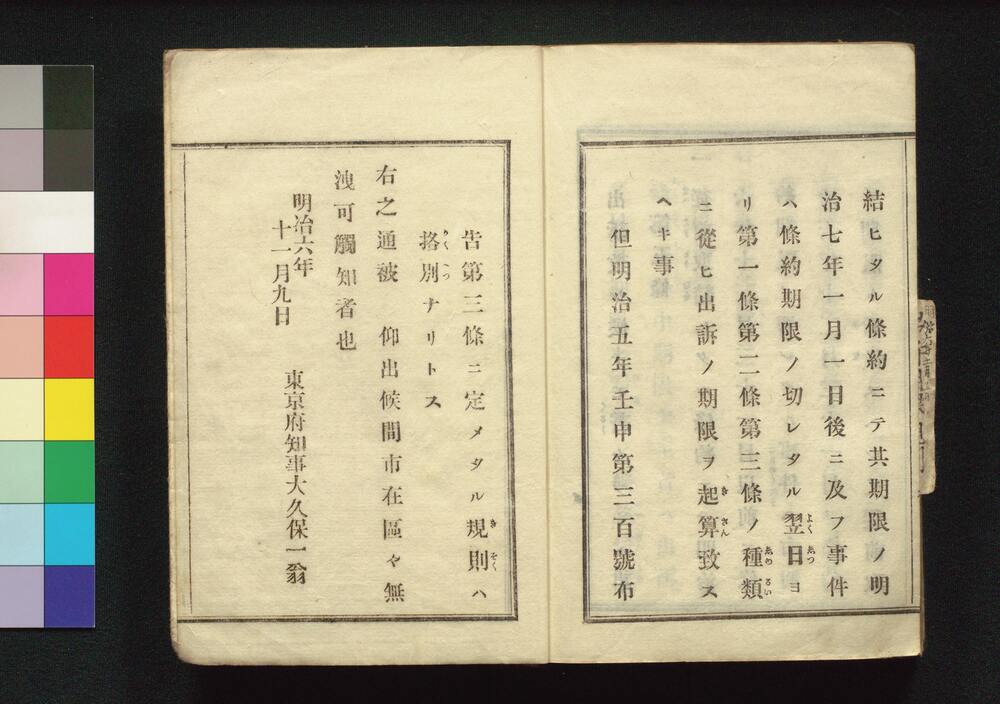 結ヒタル條約ニテ其期限ノ明
治七年一月一日後ニ及フ事件
ハ條約期限ノ切レタル翌日ヨ
リ第一條第二條第三條ノ種類
ニ從ヒ出訴ノ期限ヲ起算致ス
ヘキ事
但明治五年壬申第三百號布
告第三條ニ定メタル規則ハ
挌別ナリトス
右之通被 仰出候間市在區々無
洩可觸知者也
明治六年
十一月九日
東京府知事大久保一翁